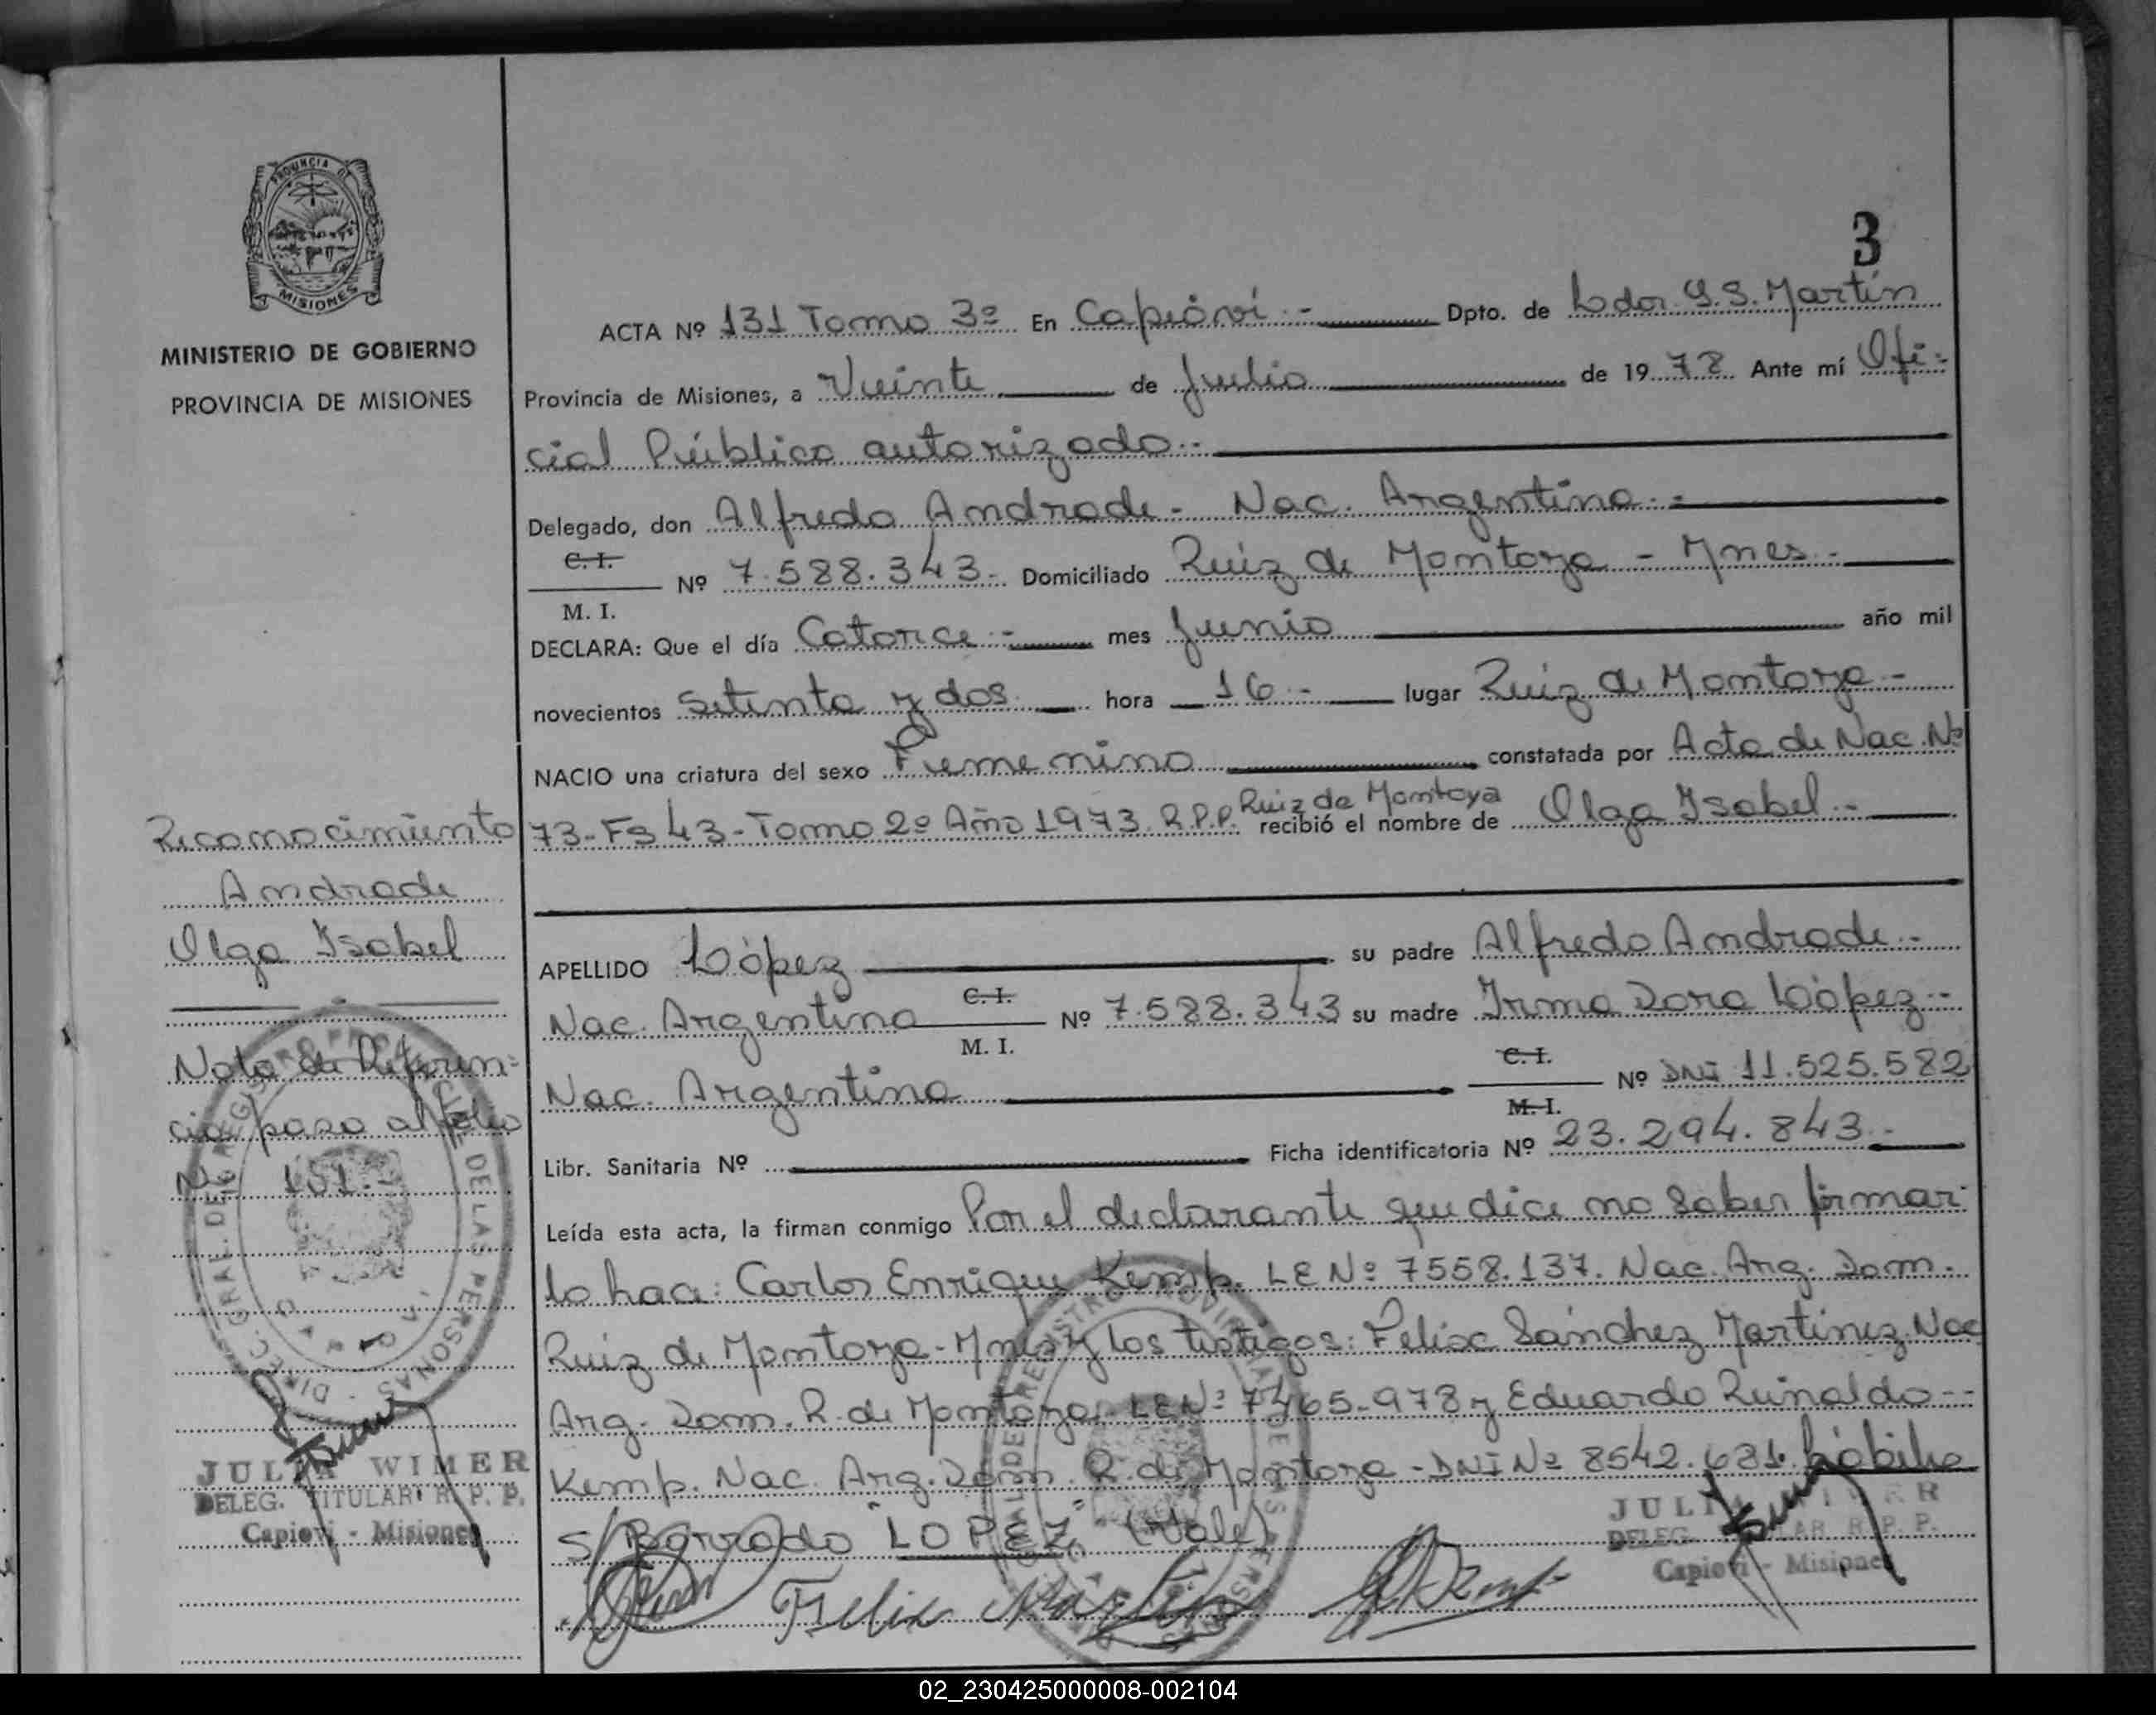 PROVINCIA DE
MISIONES
MINISTERIO DE GOBIERNO
PROVINCIA DE MISIONES
3
ACTA Nº 131 Tomo 3º En Capióví.- Dpto. de Ldor. G.S. Martín
Provincia de Misiones, a Veinte de Julio de 1978 Ante mí Ofi-
cial Público autorizado.-
Delegado, don Alfredo Andrade - Nac. Argentina.-
C. I.
Nº 7.588.343.- Domiciliado Ruiz de Montoya - Mnes.-
M. I.
DECLARA: Que el día Catorce.- mes Junio año mil
novecientos Setenta y dos hora 16.- lugar Ruiz de Montoya.-
NACIO una criatura del sexo Femenino constatada por Acta de Nac. Nº
73-Fs 43-Tomo 2º Año 1973. R.P.P. Ruiz de Montoya recibió el nombre de Olga Isabel.-
APELLIDO López su padre Alfredo Andrade.-
Nac. Argentina C. I. Nº 7.588.343 su madre Irma Dora López.-
M. I.
Nac. Argentina C. I. Nº DNI 11.525.582
M. I.
Libr. Sanitaria Nº Ficha identificatoria Nº 23.294.843.-
Leída esta acta, la firman conmigo Por el declarante que dice no saber firmar
lo hace: Carlos Enrique Kemp. LE Nº 7558.137. Nac. Arg. Dom.
Ruiz de Montoya-Mnes y los testigos: Felix Sánchez Martinez Nac
Arg. Dom. R. de Montoya LE Nº 7465.978 y Eduardo Reinaldo--
Kemp. Nac. Arg. Dom. R. de Montoya - DNI Nº 8542.681.
S/Borrado "LOPEZ" (Vale)
Felix
JULIA WIMER
DELEG. TITULAR R. P. P.
Capioví - Misiones
Reconocimiento
Andrade
Olga Isabel
Nota de Referen-
cia paso al folio
Nº 151.-
DIREC. GRAL. DEL REGISTRO PROVINCIAL DE LAS PERSONAS
JULIA WIMER
DELEG. TITULAR R. P. P.
Capioví - Misiones
02_230425000008-002104